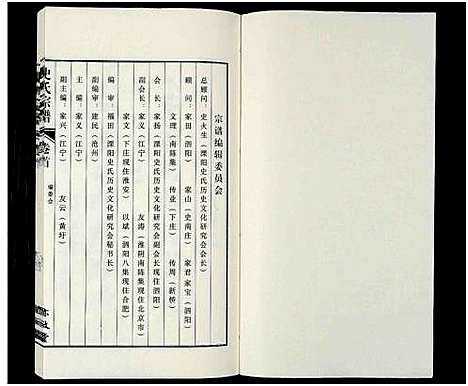 宗谱编辑委员会
总顾问：史火生（溧阳史氏历史文化研究会会长）
顾 问：家田（泗阳） 家山（史南庄） 家君 家宝（泗阳）
文理（南陈集） 传业（下庄） 传周（新桥）
会 长：家扬（溧阳史氏历史文化研究会副会长现住南京市）
副会长：家玉（江宁） 友涛（淮阴南陈集现住北京市）
家文（下庄现住淮安） 以斌（泗阳八集现住合肥）
编 审：福田（溧阳史氏历史文化研究会秘书长）
副编审：建民（沧州）
主 编：家义（江宁）
副主编：家兴（江宁） 友云（黄圩）
史氏宗谱
卷首
编委会